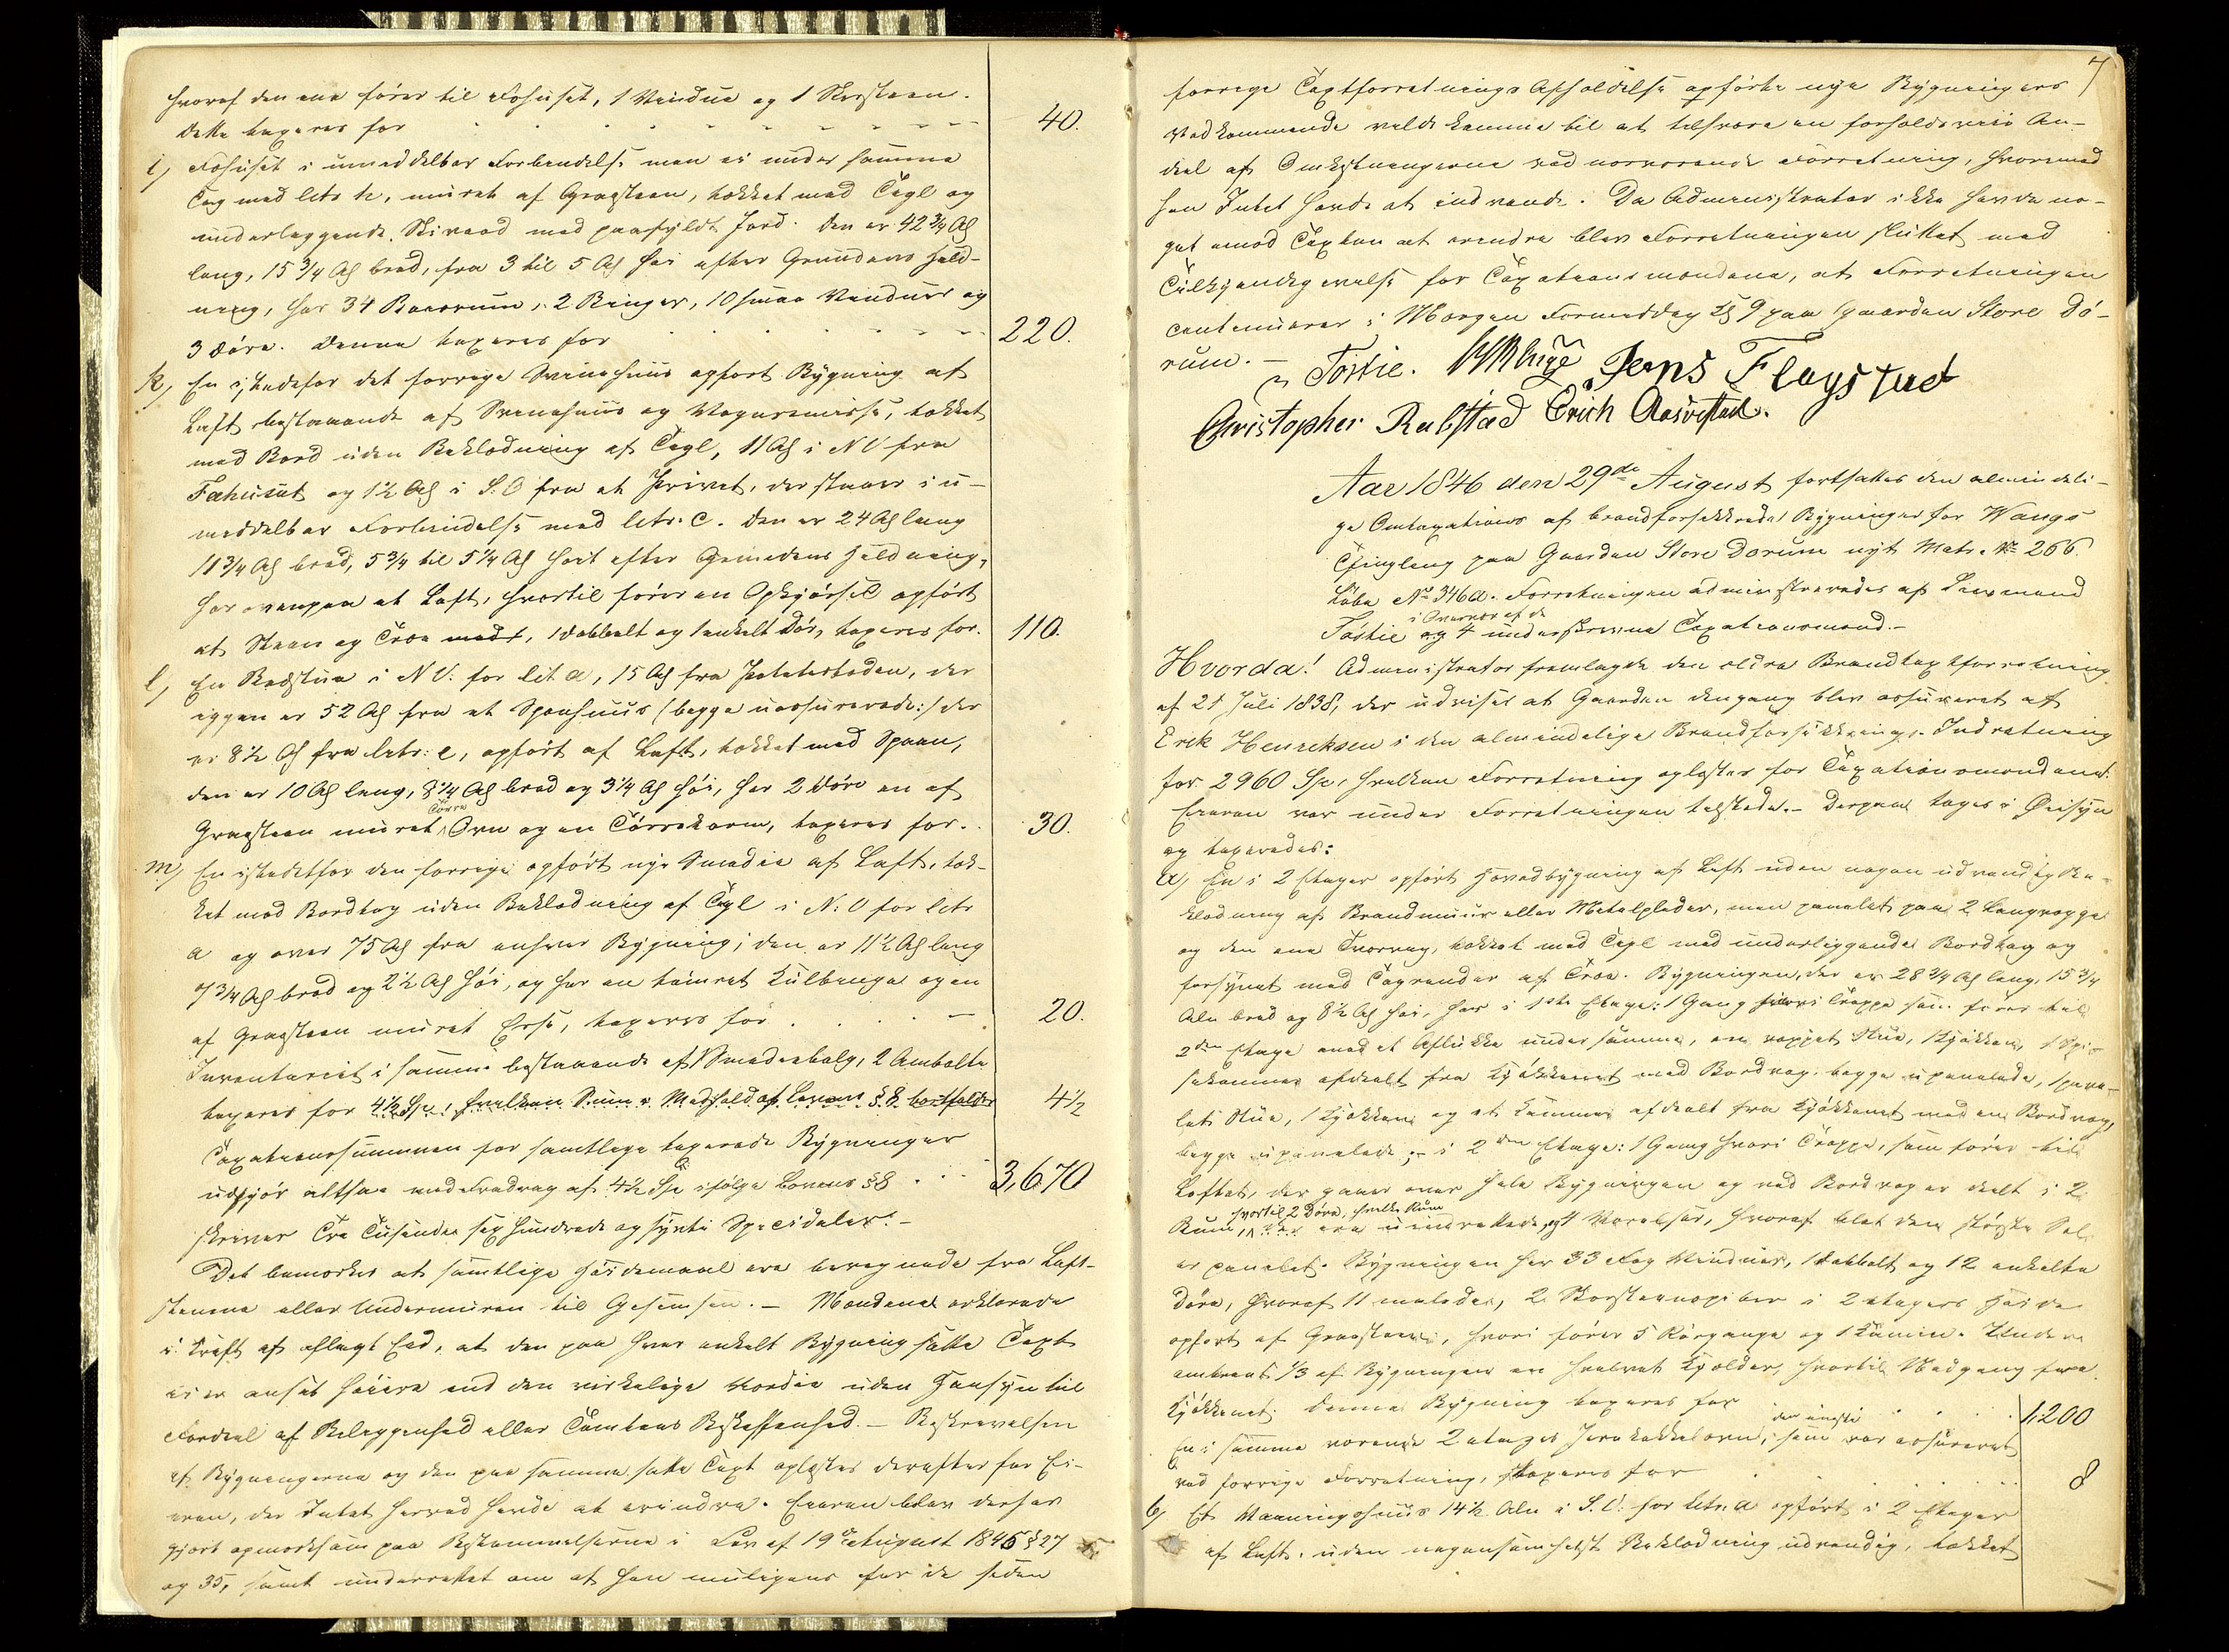 hvoraf den ene fører til Fæhuset, 1 Vindue og 1 Skorsteen.
dette taxeres for 40.
i, Fæhuset i umiddelbar Forbindelse men ei under samme
Tag med litr. h, muret af Graasteen, tækket med Tegl og
underlæggende Skivaad med paafyldt Jord. Den er 42 3/4 Al
lang, 15 3/4 Al bred, fra 3 til 5 Al høi efter Grundens Held-
ning, har 34 Baasrum, 2 Binger, 10 smaa Vinduer og
3 Døre. Denne taxeres for 220.
k, En istedetfor det forrige Sviinehuus opført Bygning af
Laft bestaaende af Sviinehuus og Vognremisse, tækket
med Bord uden Beklædning af Tegl, 11 Al i NV fra
Fæhuset og 1 1/2 Al i S.O fra et Privet, der staaer i u-
middelbar Forbindelse med litr. c. Den er 24 Al lang
11 3/4 Al bred, 5 3/4 til 5 1/4 Al høit efter Grundens Heldning,
har ovenpaa et Loft, hvortil fører en Opkjørsel opført
af Steen og Træe med, 1 dobbelt og 1 enkelt Dør, taxeres for. 110.
l, En Badstue i N V. for lit a, 15 Al fra Potetesboden, der
iggen er 52 Al fra et Sponhuus /: begge uassurerede :/ der
er 8 1/2 Al fra litr: e, opført af Laft, tækket med Spaan,
den er 10 Al lang, 8 1/4 Al bred og 3 1/4 Al høi, har 2 Døre en af
Graasteen muret Ovn og en Tørrekarm, taxeres for. 30.
m, En istedetfor den forrige opført nye Smedie af Laft, tæk-
ket med Bordtag uden Beklædning af Tegl i N: V for litr
a og over 75 Al fra enhver Bygning; den er 11 1/2 Al lang
7 3/4 Al bred og 2 1/2 Al høi, og har en tømret Kulbinge og en
af Graasteen muret Esse, taxeres for 20.
Inventariet i samme bestaaende af 1 Smediebælg, 2 Ambolte
taxeres for 4 1/2 Spd, hvilken Sum i Medhold af Lovens § 8 bortfalder 4 1/2
Taxationssummen for samtlige taxerede Bygninger
udgjør altsaa med Fradrag af 4 1/2 Spd ifølge Lovens § 8 3,670
skriver Tre Tusende sex hundrede og sytti Speciedaler. -
Det bemærkes at samtlige Høidemaal ere beregnede fra Laft-
stenene eller Undermuren til Gesimsen. - Mændene erklærede
i Kraft af aflagt Eed, at den paa hver enkelt Bygning satte Taxt
ei er ansat høiere end den virkelige Værdie uden Hensyn til
Fordeel af Beliggenhed eller Tomtens Beskaffenhed. - Beskrivelsen
af Bygningerne og den paa samme satte Taxt oplæstes derefter for Ei-
eren, der Intet herved havde at erindre. Eieren blev derhos
gjort opmærksom paa Bestemmelserne i Lov af 19de August 1845 § 27
og 35, samt underrettet om at han muligens for de siden
7
forrige Taxtforretnings Afholdelse opførte nye Bygningers
Vedkommende vilde komme til at tilsvare en forholdsviis An-
deel af Omkostningerne ved nærværende Forretning, hvorimod
han Intet havde at indvende. Da Administrator ikke havde no-
get imod Taxten at erindre blev Forretningen sluttet med
Tilkjendegivelse for Taxationsmændene, at Forretningen
continuerer i Morgen Formiddag Kl 9 paa Gaarden Store Dø-
rum. - Tostie. Jens Flagstad
Christopher Rabstad Erich Aasvestad.
Aar 1846 den 29de August fortsattes den almindeli-
ge Omtaxations af brandforsikkrede Bygninger for Wangs
Thinglaug paa Gaarden Store Dørum nyt Matr. No 266
Løbe No 346a. Forretningen administreredes af Lensmand
i Overvær af de
Tostie og 4 underskrevne Taxationsmænd. -
Hvorda! Administrator fremlagde den ældre Brandtaxtforretning
af 21 Juli 1838, der udviser at Gaarden dengang blev assureret af
Erik Henriksen i den almindelige Brandforsikkrings-Indretning
for 2960 Spd, hvilken Forretning oplæstes for Taxationsmændene.
Eieren var under Forretningen tilstede. - Derpaa toges i Øiesyn
og taxeredes:
a, En i 2 Etager opført Hovedbygning af Laft uden nogen udvendig Be-
klædning af Brandmuur eller Metalplader, men panelet paa 2 Langvægge
og den ene Tværvæg, tækket med Tegl med underliggende Bordtag og
forsynet med Tagrender af Træe. Bygningen, der er 28 3/4 Al lang, 15 3/4
Alen bred og 8 1/2 Al høi, har i 1ste Etage: 1 Gang hvori Trappe som fører til
2den Etage med et Aflukke under samme, en Stue, 1 Kjøkken, 1 Spi-
sekammer afdeelt fra Kjøkkenet med Bordvæg, begge upanelede, 1 pane-
let Stue, 1 Kjøkken og et Kammer afdeelt fra Kjøkkenet med en Bordvæg,
begge upanelede; - i 2den Etage: 1 Gang hvori Trappe, som fører til
Loftet, der gaaer over hele Bygningen og ved Bordvæg er deelt i 2
hvortil 2 Døre, hvilke Rum
Rum, ere uindredede, og 4 Værelser, hvoraf blot den største Sal
er panelet. Bygningen har 33 Fag Vinduer, 1 dobbelt og 12 enkelte
Døre, hvoraf 11 malede, 2 Skorsteenspiber i 2 Etagers Høide
opført af Graasteen, hvori fører 5 Rørgange og 1 Kamin. Under
omtrent 1/3 af Bygningen en hvælvet Kjælder, hvortil Nedgang fra
Kjøkkenet. Denne Bygning taxeres for 1,200
den eneste
En i samme værende 2 Etages Jernkakkelovn, som var assureret
ved forrige Forretning, taxeres for 8
b, Et Vaaningshuus 14 1/2 Alen i S.V. for litr. a opført i 2 Etager
af Laft, uden nogensomhelst Beklædning udvendig, tækket